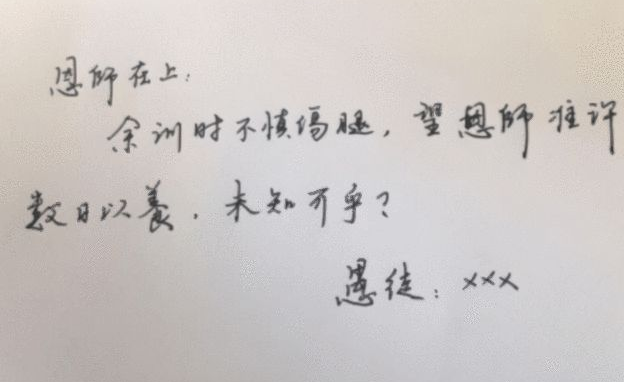 恩师在上:
余训时不慎伤腿,望恩师准许
数日以养,未知可乎?
愚徒:xxx